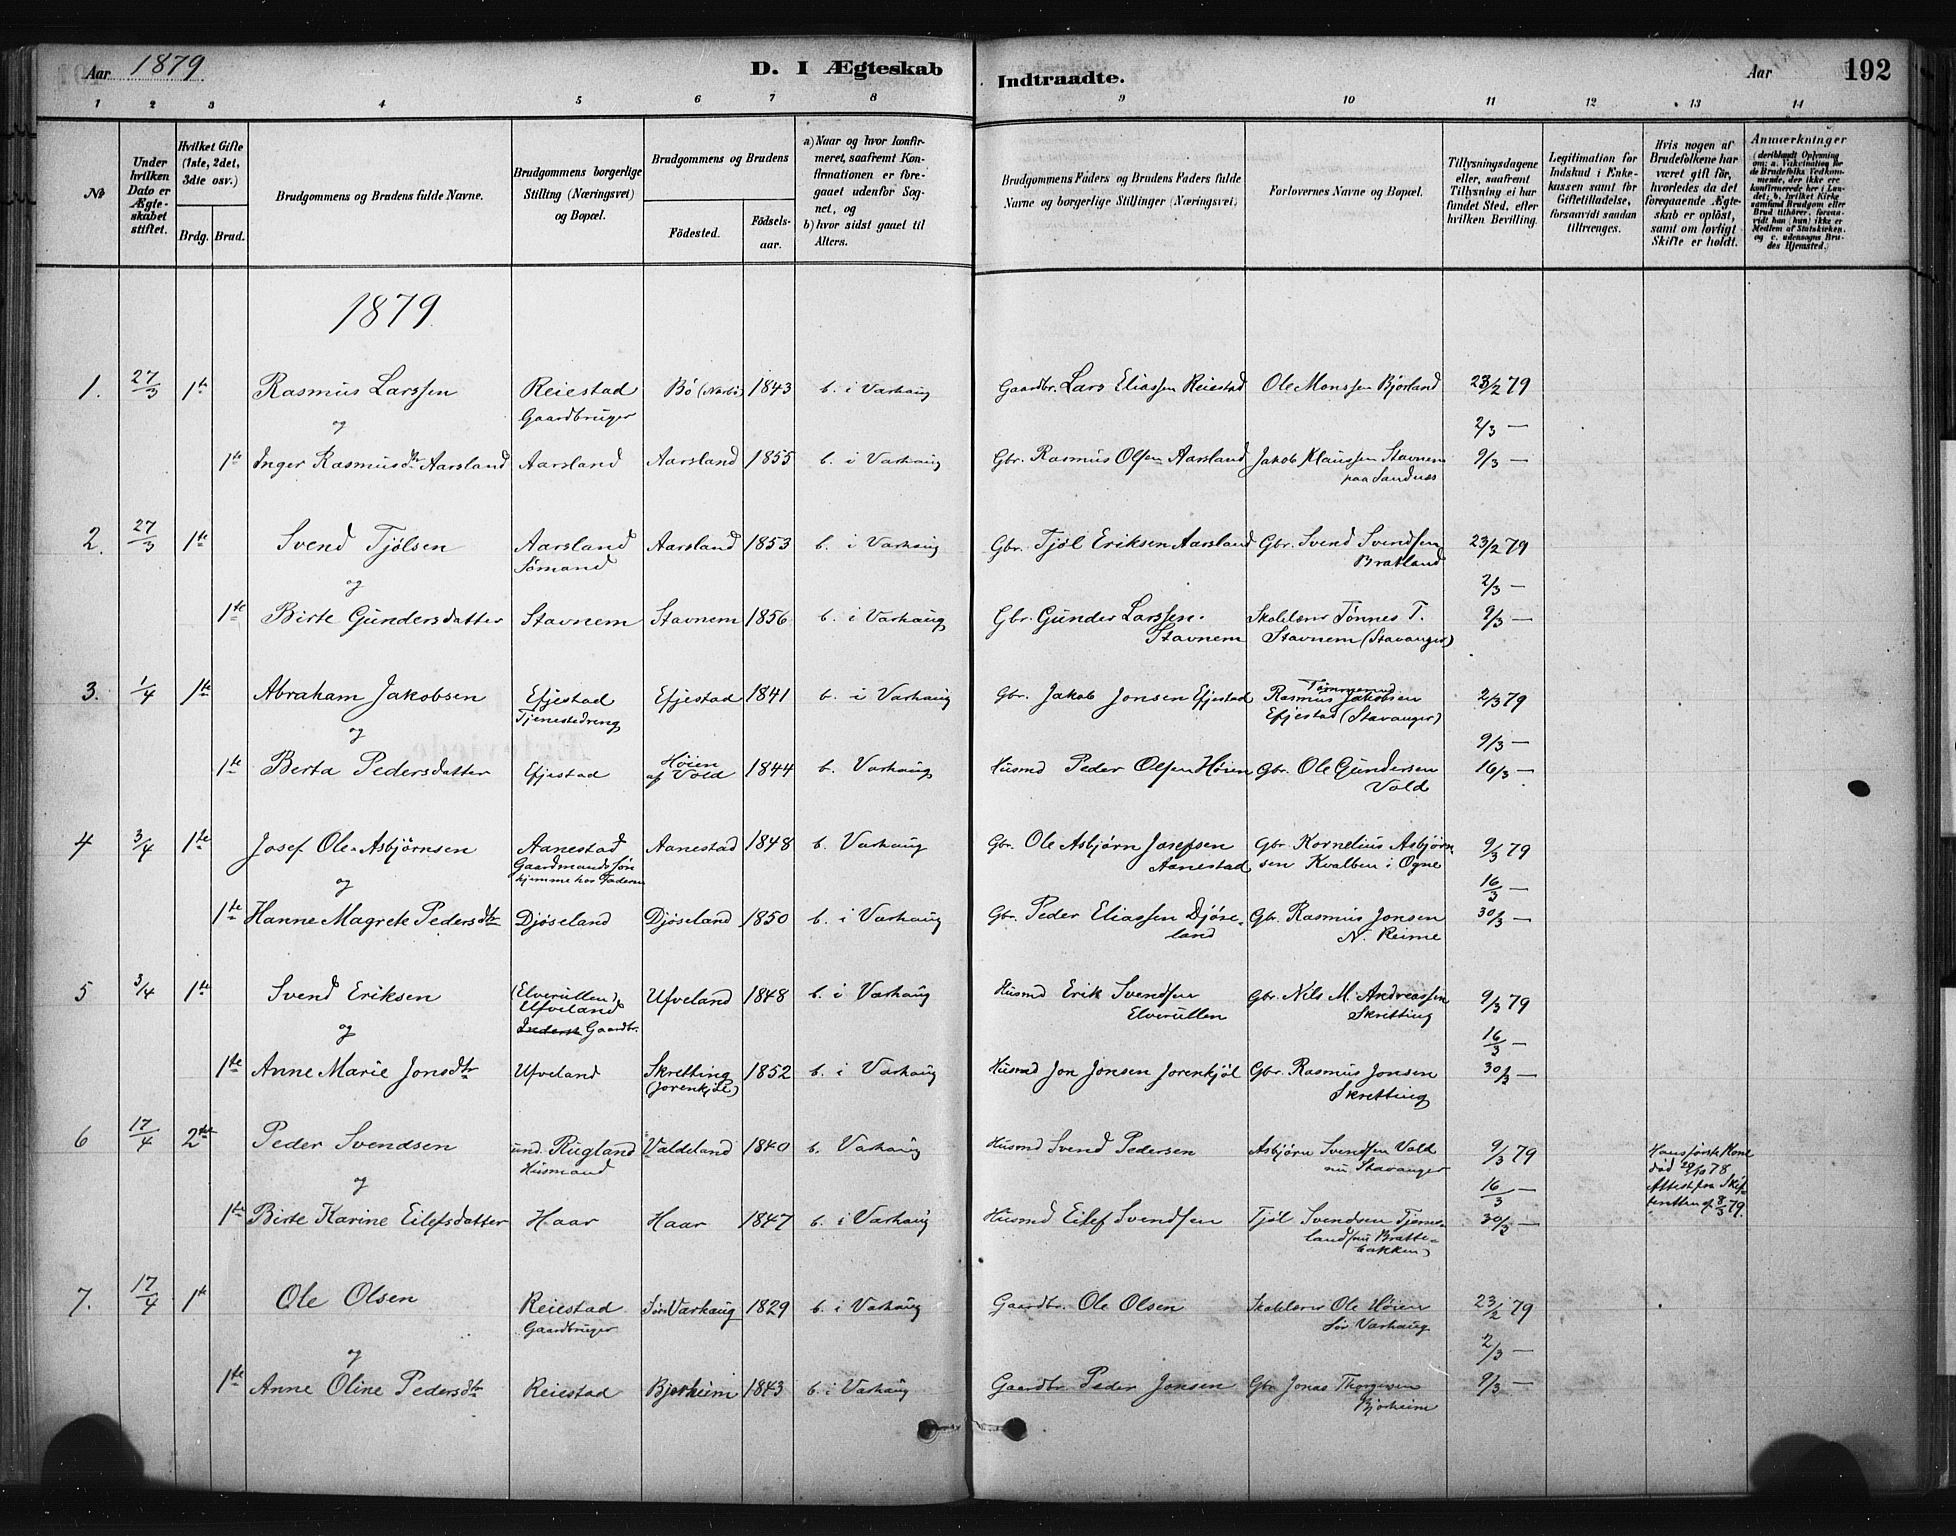 Aar 1879
D. I Ægteskab
Indtraadte.
Aar
192
1 2 3 4 5 6 7 8 9 10 11 12 13 14
No
Under hvilken Dato er Ægteskabet stiftet.
Hvilket Gifte (1ste, 2det, 3die osv.)
Brdg. Brud.
Brudgommens og Brudens fulde Navne.
Brudgommens borgerlige Stilling (Næringsvei) og Bopæl.
Brudgommens og Brudens
Födested.
Födsels-aar.
a) Naar og hvor konfirmeret, saafremt Konfirmationen er foregaaet udenfor Sognet, og
b) hvor sidst gaaet til Alters.
Brudgommens Faders og Brudens Faders fulde Navne og borgerlige Stillinger (Næringsvei)
Forlovernes Navne og Bopæl.
Tillysningsdagene eller, saafremt Tillysning ei har fundet Sted, efter hvilken Bevilling.
Legitimation for Indskud i Enkekassen samt for Giftetilladelse, forsaavidt saadan tiltrænges.
Hvis nogen af Brudefolkene har været gift før, hvorledes da det foregaaende Ægteskab er oplöst, samt om lovligt Skifte er holdt.
Anmærkninger
1879.
1. 27/3 1ste Rasmus Larssen Reiestad Bö (Narbö) 1843 b. i Varhaug Gaardbr. Lars Eliassen Reiestad Ole Monssen Bjorland 23/2 79
og Gaardbruger 2/3 —
1ste Inger Rasmusdtr Aarsland Aarsland Aarsland 1855 b. i Varhaug Gbr. Rasmus Olsen Aarsland Jakob Klaussen Stavnem 9/3 —
paa Sandnæs
2. 27/3 1ste Svend Tjølsen Aarsland Aarsland 1853 b. i Varhaug Gbr. Tjøl Eriksen Aarsland Gbr. Svend Svendsen 23/2 79
Sømand Bratland
og 2/3 —
1ste Birte Gundersdatter Stavnem Stavnem 1856 b. i Varhaug Gbr. Gunder Larssen Skolelærer Tønnes T. 9/3 —
Stavnem Stavnem (Stavanger)
3. 1/4 1ste Abraham Jakobsen Efjestad Efjestad 1841 b. i Varhaug Gbr. Jakob Jonsen Efjestad Tømmermd Rasmus Jakobsen 2/3 79
Tjenestedreng Efjestad (Stavanger)
og 9/3 —
1ste Berta Pedersdatter Efjestad Høien af Vold 1844 b. Varhaug Husmd Peder Olsen Høien Gbr. Ole Gundersen 16/3 —
Vold
4 3/4 1ste Josef Ole Asbjørnsen Aanestad Aanestad 1848 b. Varhaug Gbr. Ole Asbjørn Josefsen Gbr. Kornelius Asbjørn- 9/3 79
Gaardmands Søn Aanestad sen Kvalben i Ogne
og hjemme hos Faderen 16/3 —
1ste Hanne Magrete Pedersdtr Djøseland Djøseland 1850 b. i Varhaug Gbr. Peder Eliassen Djøse- Gbr. Rasmus Jonsen 30/3 —
land N. Reime
5 3/4 1ste Svend Eriksen (Elverullen) Ufveland 1848 b. i Varhaug Husmd Erik Svendsen Gbr. Nils M. Andreassen 9/3 79
Ufveland Elverullen Skretting
og Gaardbr. 16/3 —
1ste Anne Marie Jonsdtr Ufveland Skretting 1852 b. i Varhaug Husmd Jon Jonsen Jorenkjøl Gbr. Rasmus Jonsen 30/3 —
(Jorenkjøl) Skretting
6 17/4 2det Peder Svendsen und. Rugland Valdeland 1840 b. Varhaug Husmd Svend Pedersen Asbjørn Svendsen Vold 9/3 79 Hans første Kone
Husmand nu Stavanger død 28/10 78
og 16/3 — Attest fra Skif-
1ste Birte Karine Eilefsdatter Haar Haar 1847 b. i Varhaug Husmd Eilef Svendsen Tjøl Svendsen Tjems- 30/3 — teretten af 8/3 79.
land (nu Bratte-
bakken)
7. 17/4 1ste Ole Olsen Reiestad Sør Varhaug 1829 b. i Varhaug Gaardbr. Ole Olsen Skolelærer Ole Høien 23/2 79
Gaardbruger Sør Varhaug
og 2/3 —
1ste Anne Oline Pedersdtr Reiestad Bjorheim 1843 b. i Varhaug Gaardbr. Peder Jonsen Gbr. Jonas Thorgersen 9/3 —
Bjorheim